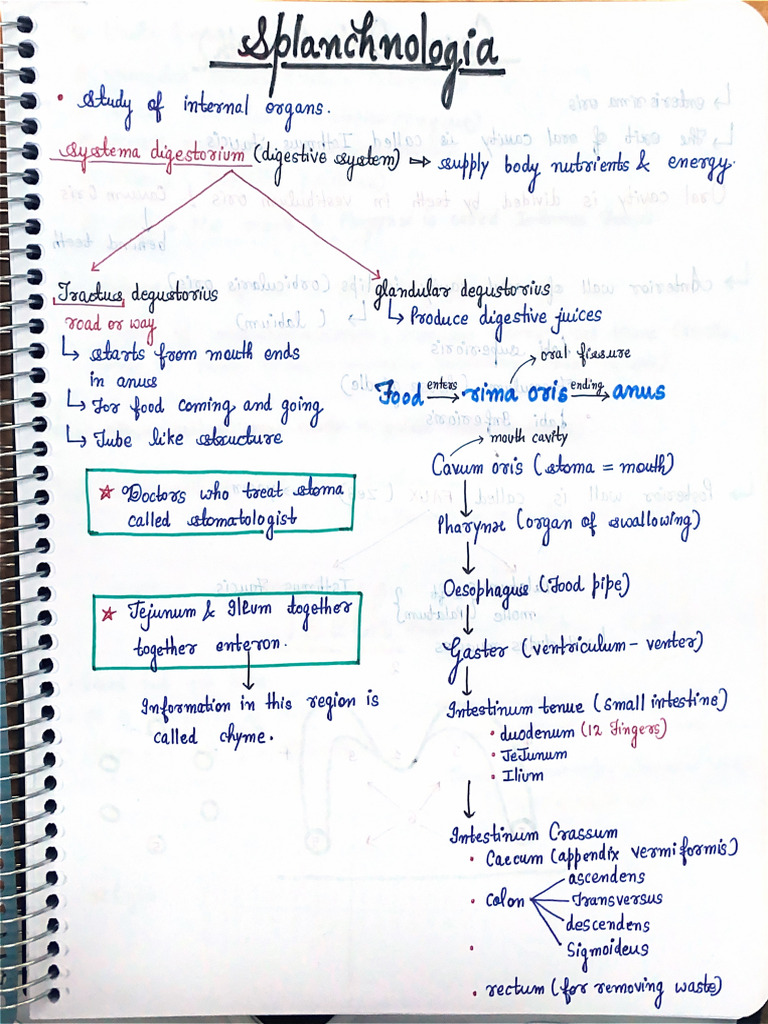 Splanchnologia
• Study of internal organs.
Systema digestorium (digestive system) ⇒ supply body nutrients & energy.
Tractus degustorius
road or way
↳ starts from mouth ends
in anus
↳ For food coming and going
↳ Tube like structure
★ Doctors who treat stoma
called stomatologist
★ Jejunum & Ileum together
together enteron.
Information in this region is
called chyme.
glandular degustorius
↳ Produce digestive juices
oral fissure
Food enters → rima oris ending → anus
mouth cavity
Cavum oris (stoma = mouth)
Pharynx (organ of swallowing)
Oesophague (Food pipe)
Gaster (ventriculum - venter)
Intestinum tenue (small intestine)
• duodenum (12 Fingers)
• JeJunum
• Ilium
Intestinum Crassum
• Caecum (appendix vermiformis)
• Colon
ascendens
Transversus
descendens
Sigmoideus
• rectum (for removing waste)